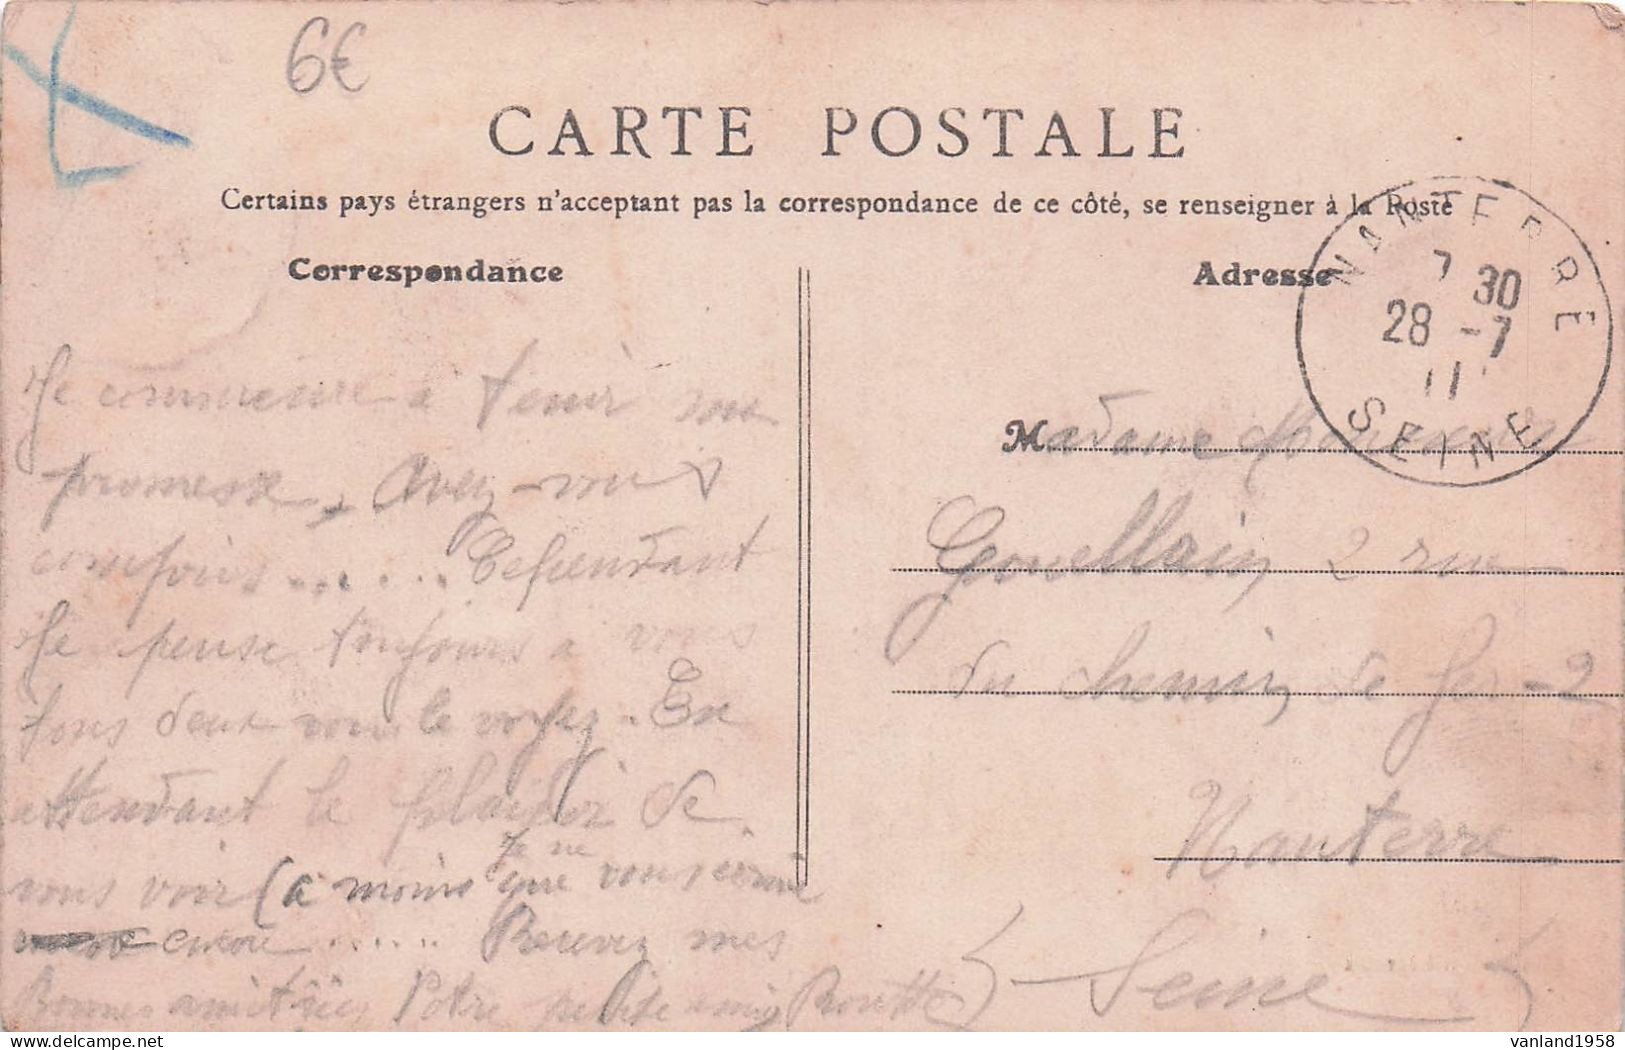 6€
CARTE POSTALE
Certains pays étrangers n'acceptant pas la correspondance de ce côté, se renseigner à la Poste
Correspondance
Adresse
NANTERRE
7 30
28 -7
11
SEINE
Je commence à tenir ma
promesse, Avez-vous
compris...... Cependant
Je pense toujours a vous
tous deux vous le voyez. En
attendant le plaisir de
vous voir (a moins que je ne vous écrive
encore ...... Recevez mes
Bonnes amitiées Votre petite amie
Madame
Gouellain 2 rue
du chemin de fer -2
Nanterre
(Seine)
vanland1958